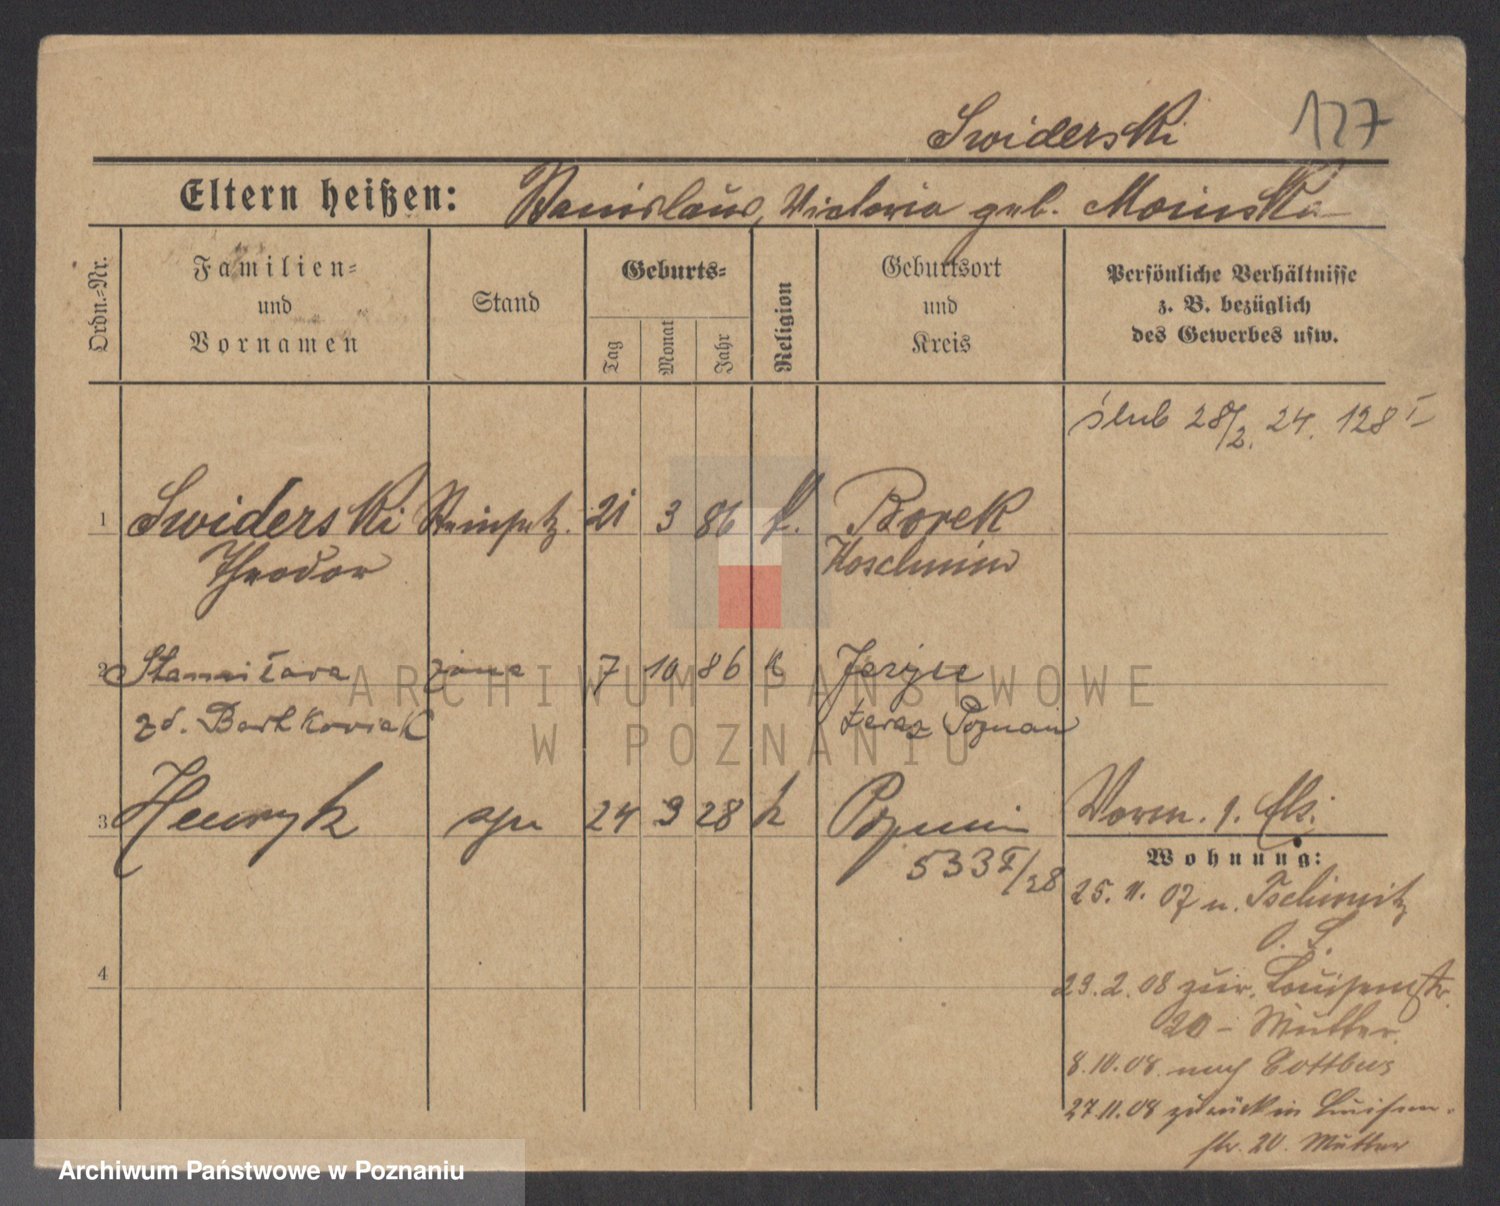 Swiderski 127
Eltern heißen: Stanislaus, Victoria geb. Moinska
Ordn.-Nr.
Familien-
und
Vornamen
Stand
Geburts-
Tag
Monat
Jahr
Religion
Geburtsort
und
Kreis
Persönliche Verhältnisse
z. B. bezüglich
des Gewerbes usw.
ślub 28/2. 24. 128 I
1 Swiderski Steinsetz. 21 3 86 k. Borek
Theodor Koschmin
2 Stanisława żona 7 10 86 k Jerzyce
zd. Bartkowiak teraz Poznań
3 Henryk syn 24 9 28 k Poznań Vorm. g. Els:
533 I/28
Wohnung:
25. 11. 07 n. Tschirnitz
O. S.
4
29. 2. 08 zur. Louisenstr.
20 - Mutter.
8. 10. 08. nach Cottbus
27. 11. 08 zurück in Luisen-
str. 20. Mutter
ARCHIWUM PAŃSTWOWE
W POZNANIU
Archiwum Państwowe w Poznaniu